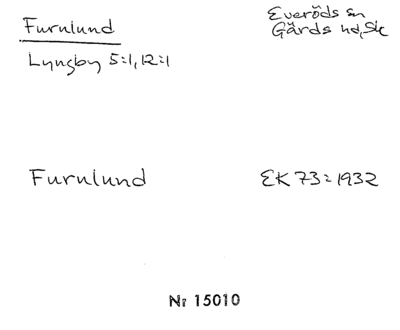 Furulund
Everöds sn
Gärds hd, Sk
Lyngby 5:1, 12:1
Furulund
EK 73:1932
Nr 15010